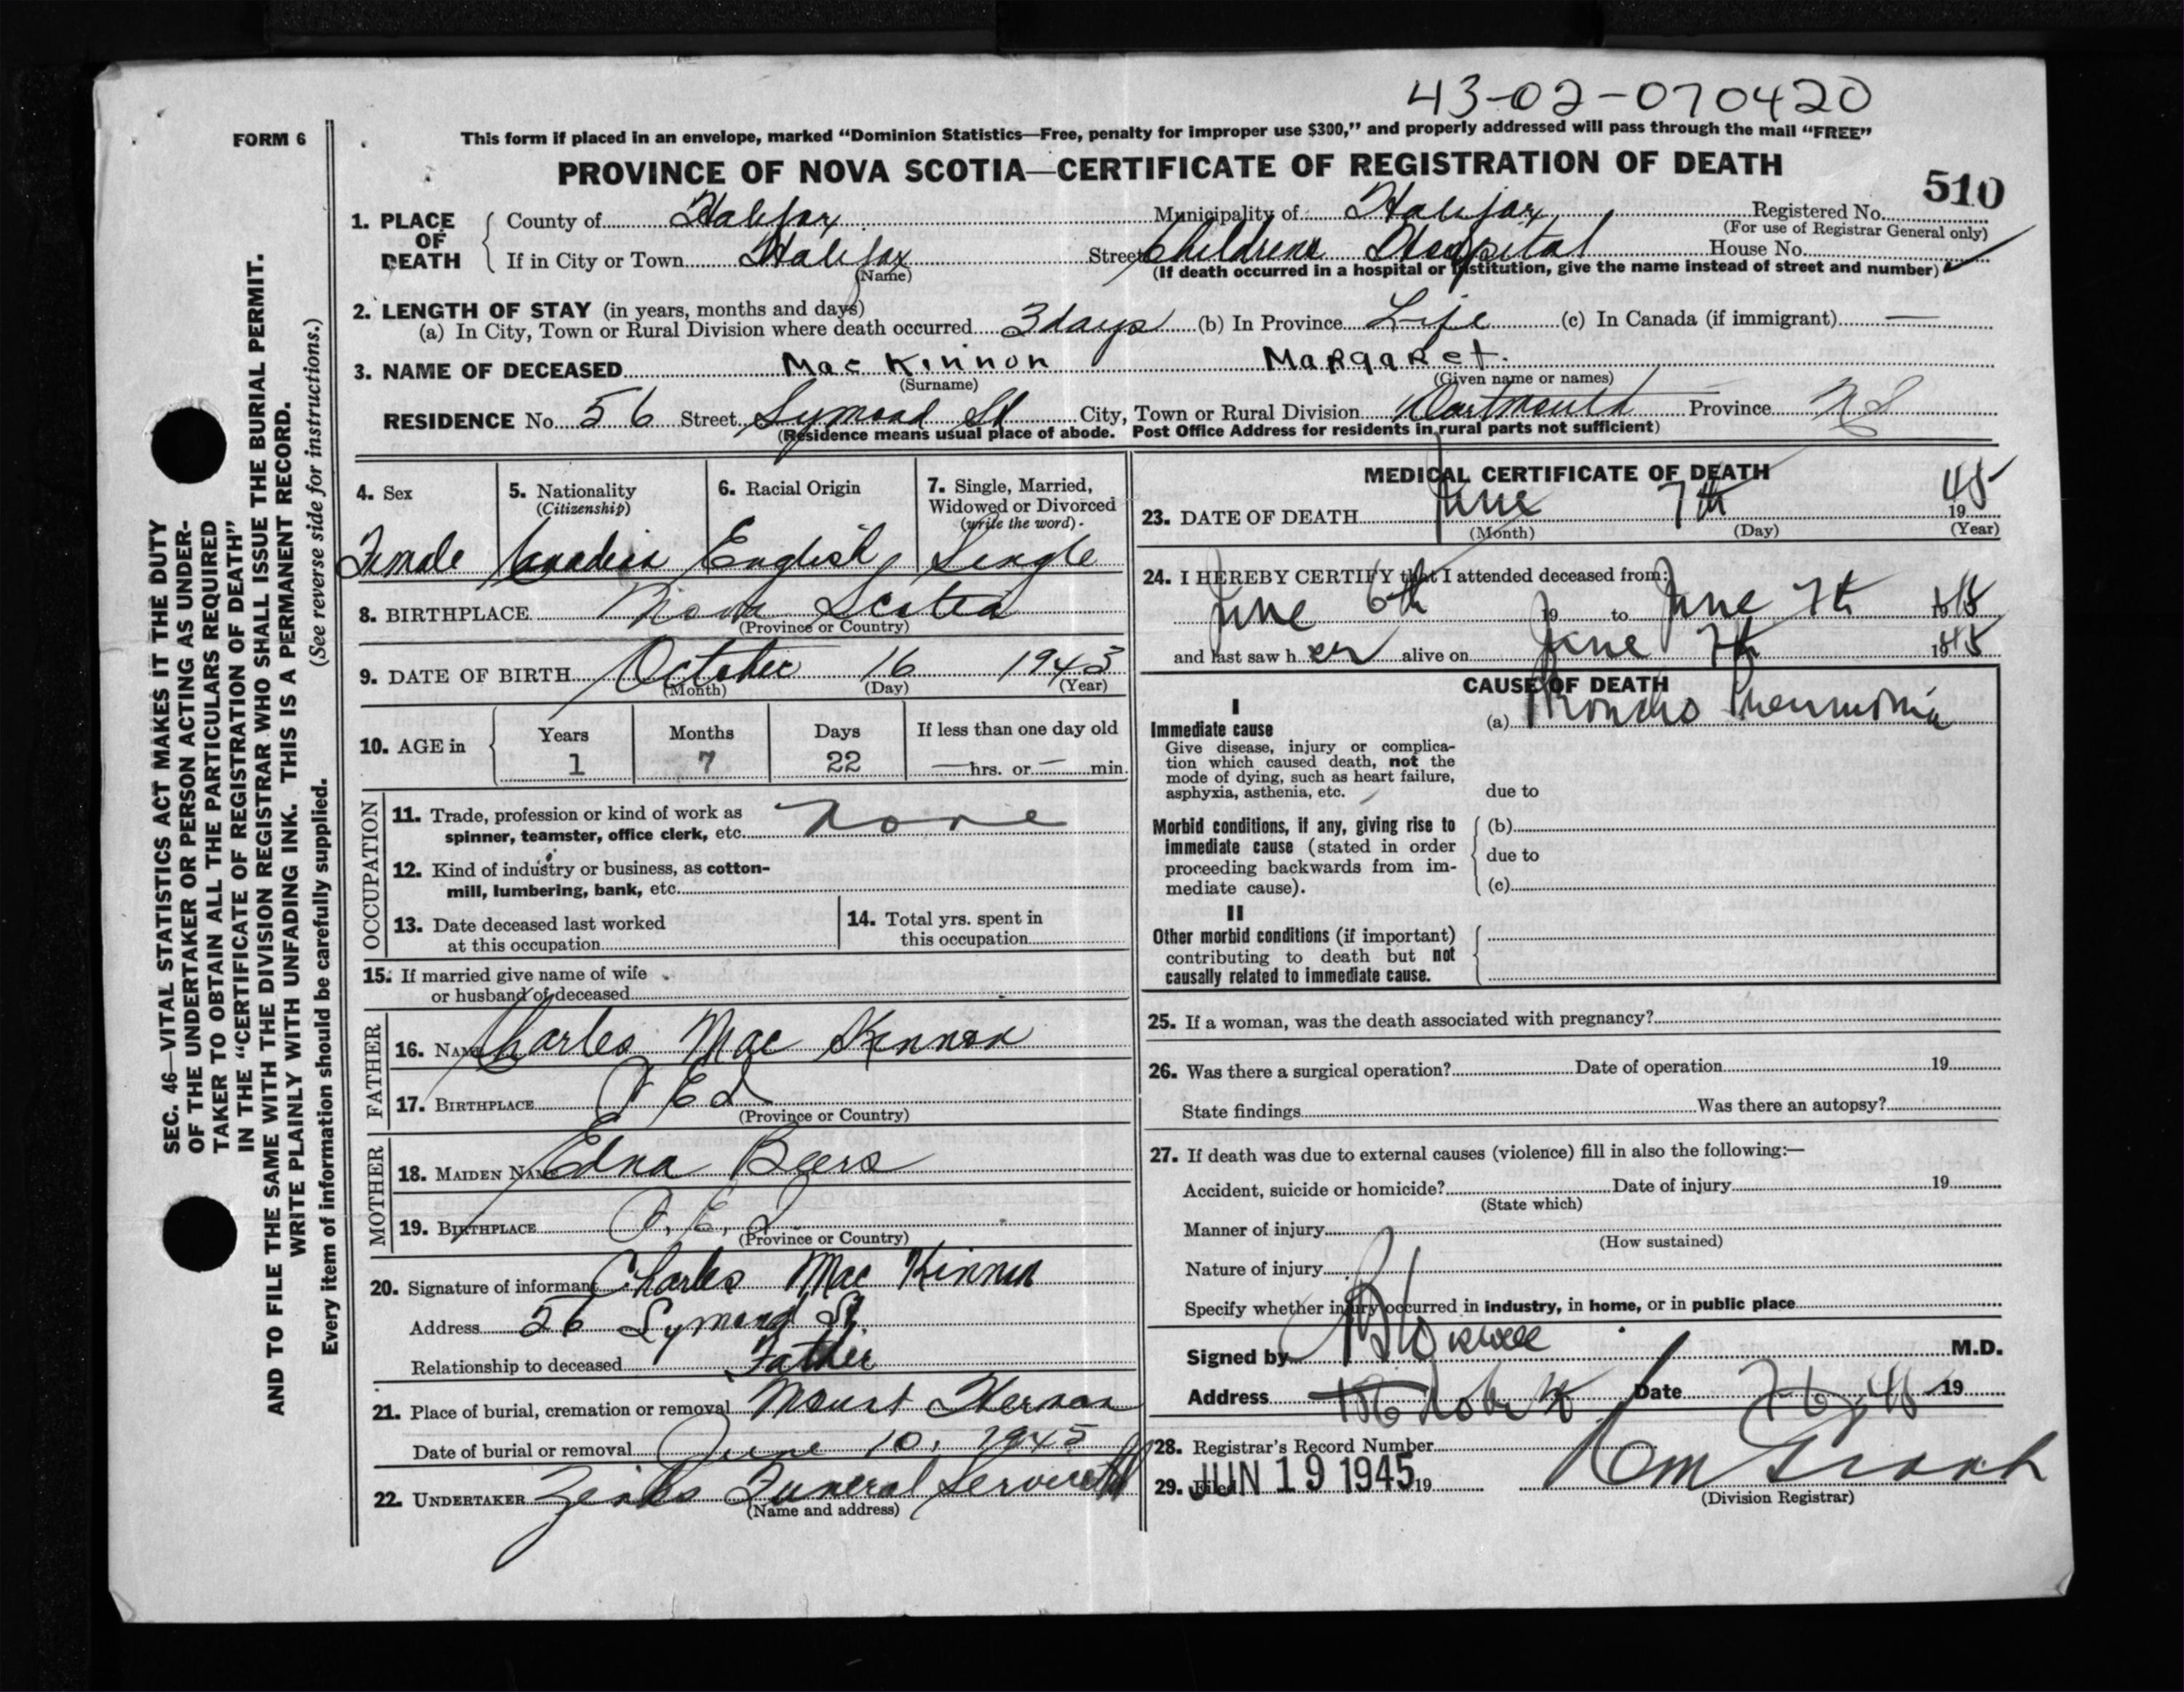 43-02-070420
FORM 6
This form if placed in an envelope, marked “Dominion Statistics—Free, penalty for improper use $300,” and properly addressed will pass through the mail “FREE”
PROVINCE OF NOVA SCOTIA—CERTIFICATE OF REGISTRATION OF DEATH
510
1. PLACE OF DEATH { County of Halifax Municipality of Halifax Registered No.
(For use of Registrar General only)
If in City or Town Halifax Street Childrens Hospital House No.
(Name) (If death occurred in a hospital or institution, give the name instead of street and number)
2. LENGTH OF STAY (in years, months and days)
(a) In City, Town or Rural Division where death occurred 3 days (b) In Province Life (c) In Canada (if immigrant) —
3. NAME OF DECEASED MacKinnon Margaret.
(Surname) (Given name or names)
RESIDENCE No. 56 Street City, Town or Rural Division Dartmouth Province NS
(Residence means usual place of abode. Post Office Address for residents in rural parts not sufficient)
4. Sex
Female
5. Nationality
(Citizenship)
Canadian
6. Racial Origin
English
7. Single, Married,
Widowed or Divorced
(write the word)
Single
8. BIRTHPLACE Nova Scotia
(Province or Country)
9. DATE OF BIRTH October 16 1943
(Month) (Day) (Year)
10. AGE in { Years Months Days If less than one day old
1 7 22 — hrs. or — min.
OCCUPATION
11. Trade, profession or kind of work as
spinner, teamster, office clerk, etc. None
12. Kind of industry or business, as cotton-
mill, lumbering, bank, etc.
13. Date deceased last worked
at this occupation
14. Total yrs. spent in
this occupation
15. If married give name of wife
or husband of deceased
FATHER
16. NAME Charles MacKinnon
17. BIRTHPLACE P E I
(Province or Country)
MOTHER
18. MAIDEN NAME Edna Beers
19. BIRTHPLACE P. E. I.
(Province or Country)
20. Signature of informant Charles MacKinnon
Address 56 St.
Relationship to deceased Father
21. Place of burial, cremation or removal Mount Hermon
Date of burial or removal June 10, 1945
22. UNDERTAKER Zinks Funeral Service
(Name and address)
MEDICAL CERTIFICATE OF DEATH
23. DATE OF DEATH June 7th 1945
(Month) (Day) (Year)
24. I HEREBY CERTIFY that I attended deceased from:
June 6th 19 to June 7th 1945
and last saw her alive on June 7th 1945
CAUSE OF DEATH
I
Immediate cause
Give disease, injury or complica-
tion which caused death, not the
mode of dying, such as heart failure,
asphyxia, asthenia, etc.
(a) Broncho Pneumonia
due to
Morbid conditions, if any, giving rise to
immediate cause (stated in order
proceeding backwards from im-
mediate cause).
(b)
due to
(c)
II
Other morbid conditions (if important)
contributing to death but not
causally related to immediate cause.
25. If a woman, was the death associated with pregnancy?
26. Was there a surgical operation? Date of operation 19
State findings Was there an autopsy?
27. If death was due to external causes (violence) fill in also the following:—
Accident, suicide or homicide? Date of injury 19
(State which)
Manner of injury
(How sustained)
Nature of injury
Specify whether injury occurred in industry, in home, or in public place
Signed by M.D.
Address Date 19
28. Registrar's Record Number
29. Filed JUN 19 1945 19
(Division Registrar)
SEC. 46—VITAL STATISTICS ACT MAKES IT THE DUTY
OF THE UNDERTAKER OR PERSON ACTING AS UNDER-
TAKER TO OBTAIN ALL THE PARTICULARS REQUIRED
IN THE “CERTIFICATE OF REGISTRATION OF DEATH”
AND TO FILE THE SAME WITH THE DIVISION REGISTRAR WHO SHALL ISSUE THE BURIAL PERMIT.
WRITE PLAINLY WITH UNFADING INK. THIS IS A PERMANENT RECORD.
Every item of information should be carefully supplied. (See reverse side for instructions.)